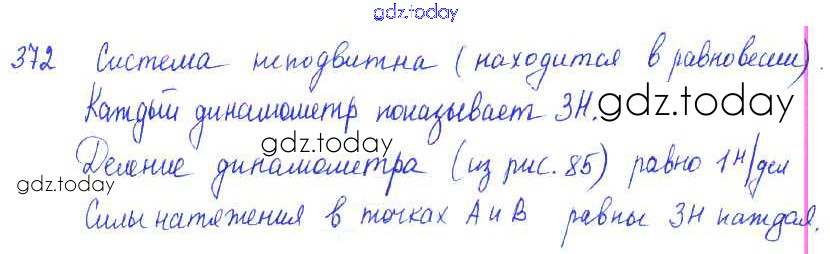 gdz.today
372 Система неподвижна (находится в равновесии).
Каждый динамометр показывает 3Н. gdz.today
gdz.today
Деление динамометра (из рис. 85) равно 1 Н/дел
gdz.today
Силы натяжения в точках А и В равны 3Н каждая.